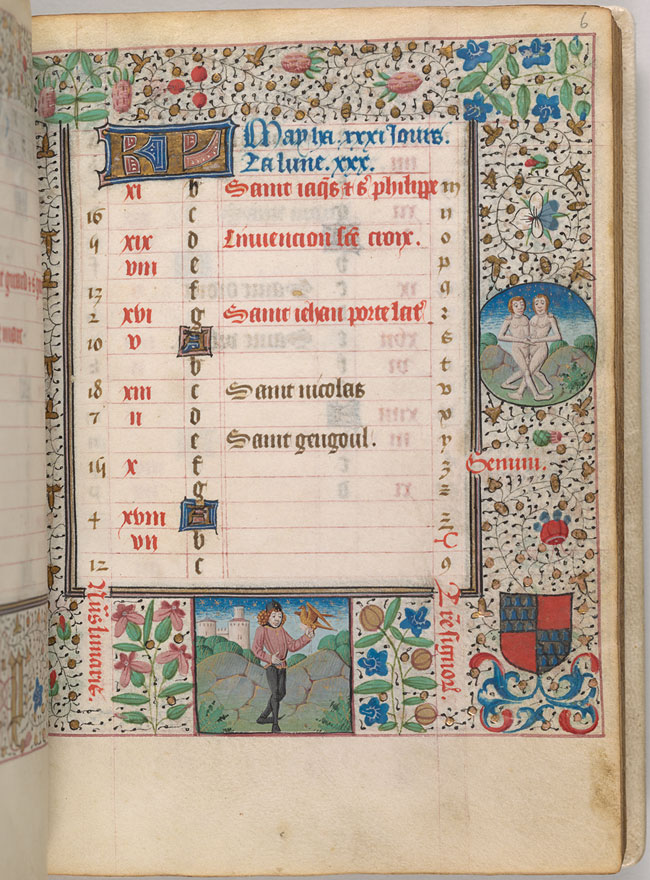 6
KL May ha xxxi Jours.
La lune. xxx.
xi b Saint iaqs & s philippe m
16 c n
9 xix d Invencion sce croix. o
viii e p
13 f q
2 xvi g Saint iehan porte lat r
10 v A s
b t
18 xiii c Saint nicolas v
7 ii d x
e Saint gengoul. y
15 x f z Gemini.
g
4 xviii A
vii b
12 c 9
lunaris.